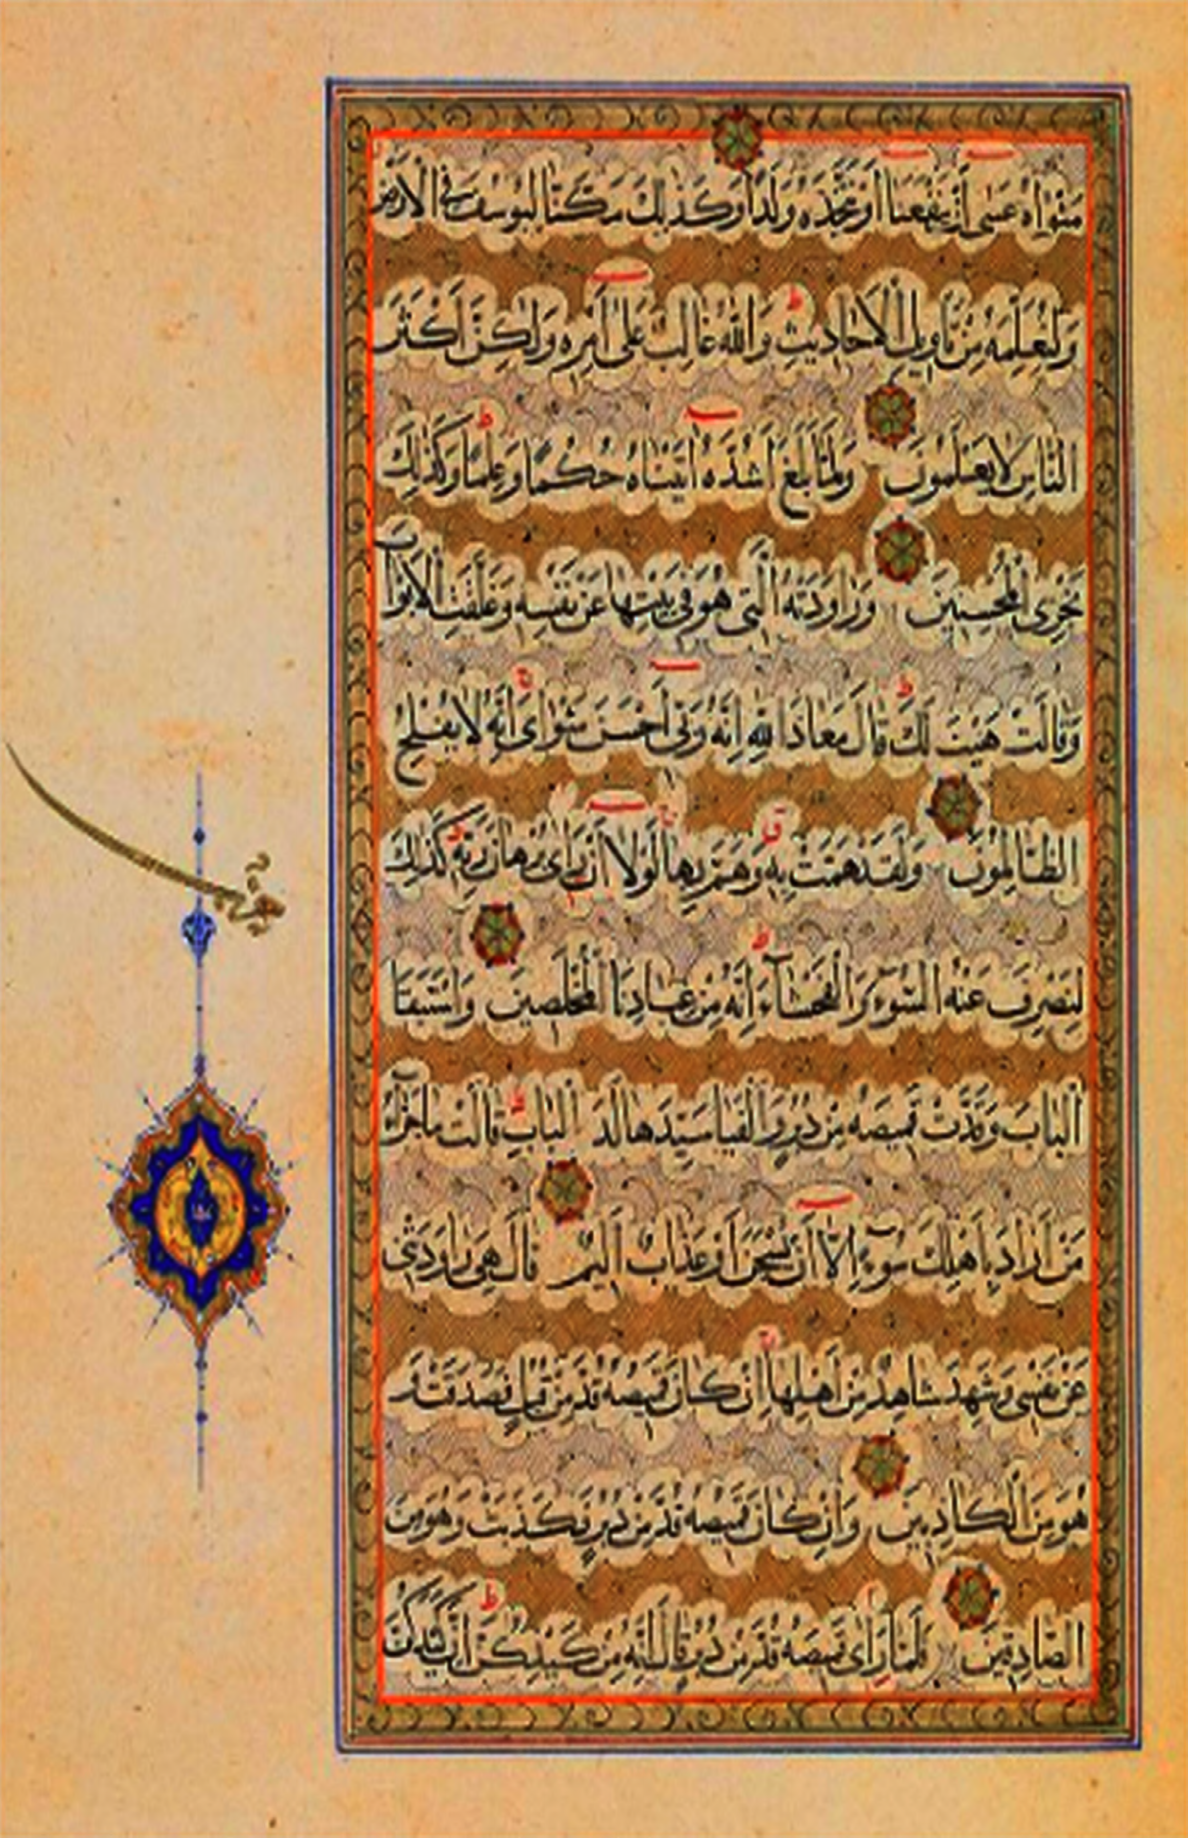 مَثْوَاهُ عَسَى أَنْ يَنْفَعَنَا أَوْ نَتَّخِذَهُ وَلَدًا وَكَذَلِكَ مَكَّنَّا لِيُوسُفَ فِي الْأَرْضِ
وَلِنُعَلِّمَهُ مِنْ تَأْوِيلِ الْأَحَادِيثِ وَاللَّهُ غَالِبٌ عَلَى أَمْرِهِ وَلَكِنَّ أَكْثَرَ
النَّاسِ لَا يَعْلَمُونَ وَلَمَّا بَلَغَ أَشُدَّهُ آتَيْنَاهُ حُكْمًا وَعِلْمًا وَكَذَلِكَ
نَجْزِي الْمُحْسِنِينَ وَرَاوَدَتْهُ الَّتِي هُوَ فِي بَيْتِهَا عَنْ نَفْسِهِ وَغَلَّقَتِ الْأَبْوَابَ
وَقَالَتْ هَيْتَ لَكَ قَالَ مَعَاذَ اللَّهِ إِنَّهُ رَبِّي أَحْسَنَ مَثْوَايَ إِنَّهُ لَا يُفْلِحُ
الظَّالِمُونَ وَلَقَدْ هَمَّتْ بِهِ وَهَمَّ بِهَا لَوْلَا أَنْ رَأَى بُرْهَانَ رَبِّهِ كَذَلِكَ
لِنَصْرِفَ عَنْهُ السُّوءَ وَالْفَحْشَاءَ إِنَّهُ مِنْ عِبَادِنَا الْمُخْلَصِينَ وَاسْتَبَقَا
الْبَابَ وَقَدَّتْ قَمِيصَهُ مِنْ دُبُرٍ وَأَلْفَيَا سَيِّدَهَا لَدَ الْبَابِ قَالَتْ مَا جَزَاءُ
مَنْ أَرَادَ بِأَهْلِكَ سُوءًا إِلَّا أَنْ يُسْجَنَ أَوْ عَذَابٌ أَلِيمٌ قَالَ هِيَ رَاوَدَتْنِي
عَنْ نَفْسِي وَشَهِدَ شَاهِدٌ مِنْ أَهْلِهَا إِنْ كَانَ قَمِيصُهُ قُدَّ مِنْ قُبُلٍ فَصَدَقَتْ وَ
هُوَ مِنَ الْكَاذِبِينَ وَإِنْ كَانَ قَمِيصُهُ قُدَّ مِنْ دُبُرٍ فَكَذَبَتْ وَهُوَ مِنَ
الصَّادِقِينَ فَلَمَّا رَأَى قَمِيصَهُ قُدَّ مِنْ دُبُرٍ قَالَ إِنَّهُ مِنْ كَيْدِكُنَّ إِنَّ كَيْدَكُنَّ